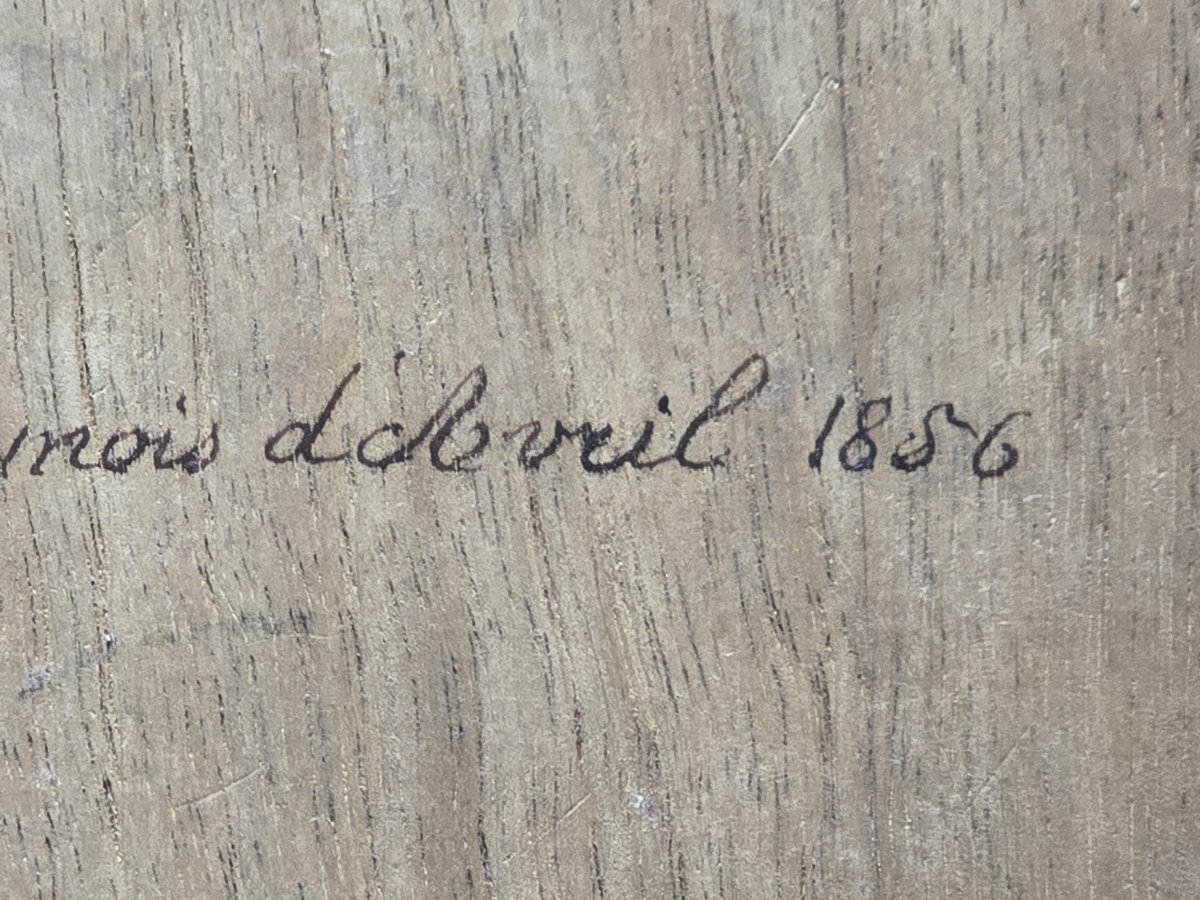 mois d'Avril 1856